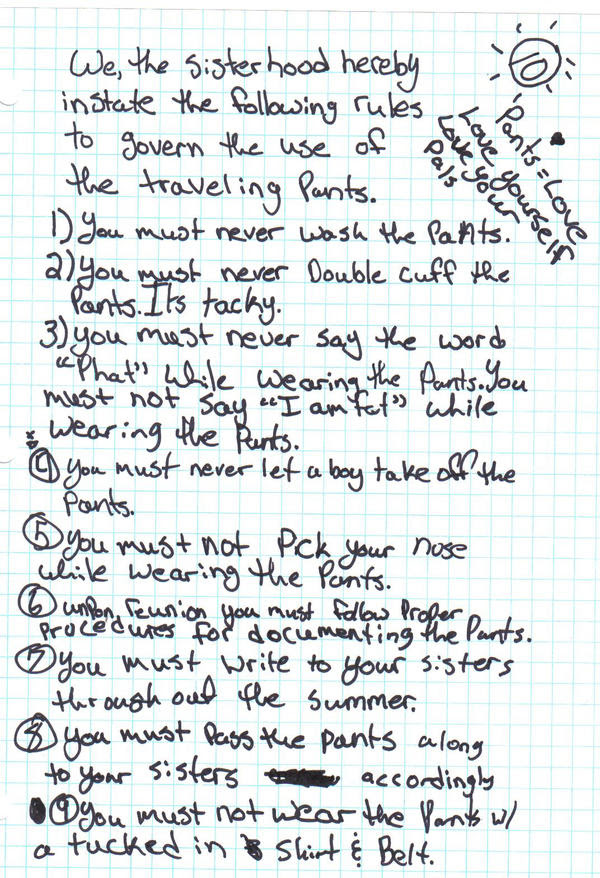 We, the sisterhood hereby
instate the following rules
to govern the use of
the traveling Pants.
Pants = Love
Love yourself
Love your
Pals
1) You must never wash the Pants.
2) You must never Double cuff the
Pants. Its tacky.
3) you must never say the word
"Phat" while wearing the Pants. You
must not say "I am fat" while
wearing the Pants.
4 you must never let a boy take off the
Pants.
5 You must not Pick your nose
while wearing the Pants.
6 unpon reunion you must follow Proper
Procedures for documenting the Pants.
7 You must write to your sisters
through out the summer.
8 you must Pass the pants along
to your sisters accordingly
9 You must not wear the Pants w/
a tucked in Shirt & Belt.